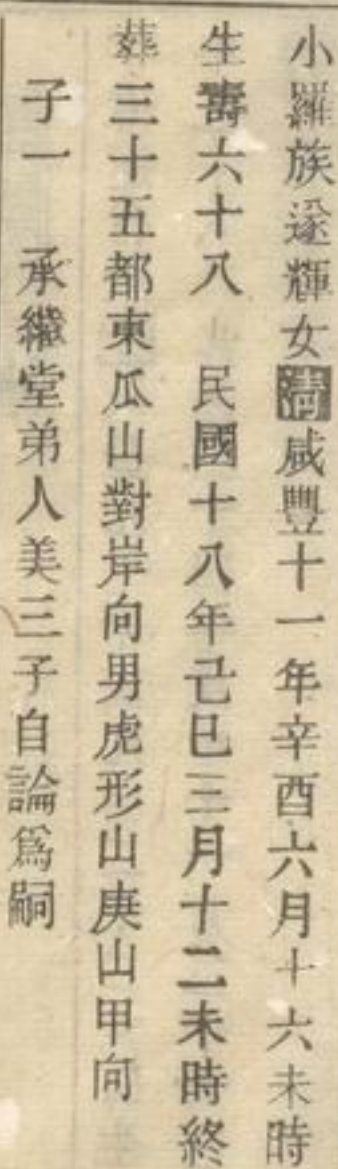 小羅族遂輝女清咸豐十一年辛酉六月十六未時
生壽六十八 民國十八年己巳三月十二未時終
葬三十五都東瓜山對岸向男虎形山庚山甲向
子一 承繼堂弟人美三子自論為嗣